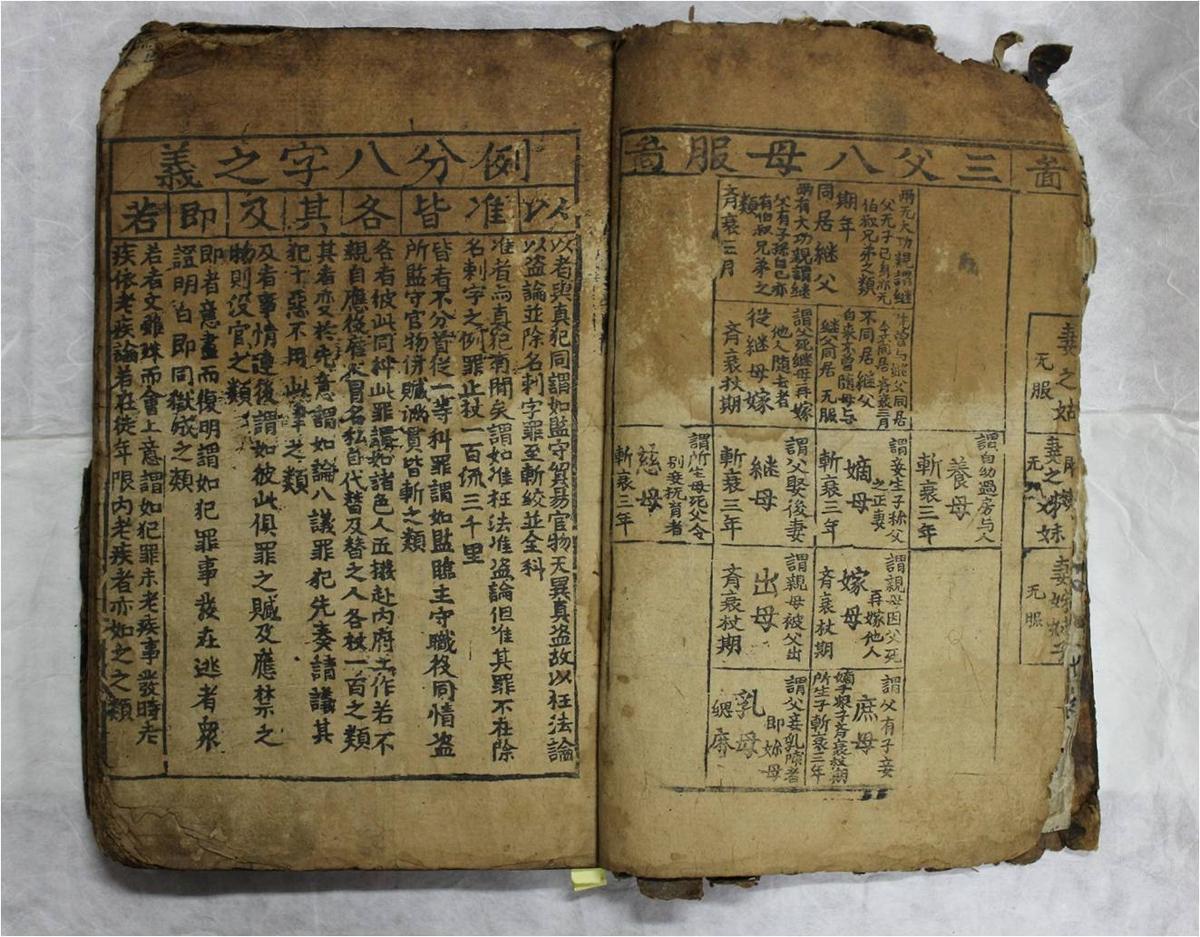 啚
妻之姑
无服
妻之姊妹
无服
妻姊妹子
无服
三父八母服啚
兩无大功親謂継
父无子己身亦无
伯叔兄弟之類
期年
同居継父
兩有大功親謂継
父有子孫自己亦
有伯叔兄弟之
類
斉衰三月
先曽与継父同居
今不同居斉衰三月
不同居継父
自来不曽随母与
継父同居 无服
謂父死継母再嫁
他人随去者
從継母嫁
斉衰杖期
謂自幼過房与人
養母
斬衰三年
謂妾生子称父
之正妻
嫡母
斬衰三年
謂父娶後妻
継母
斬衰三年
謂所生母死父令
别妾抚育者
慈母
斬衰三年
謂親母因父死
再嫁他人
嫁母
斉衰杖期
謂親母被父出
出母
斉衰杖期
謂父有子妾
庶母
嫡子衆子斉衰杖期
所生子斬衰三年
謂父妾乳哺者
即妳母
乳母
緦麻
例分八字之義
以准皆各其及即若
以者與真犯同謂如監守貿易官物无異真盗故以枉法論
以盗論並除名刺字罪至斬絞並全科
准者與真犯有間矣謂如准枉法准盗論但准其罪不在除
名刺字之例罪止杖一百流三千里
皆者不分首從一等科罪謂如監臨主守職役同情盗
所監守官物併贓滿貫皆斬之類
各者彼此同科此罪謂如諸色人五撥赴内府工作若不
親自應役雇人冒名私自代替及替之人各杖一百之類
其者变於先意謂如論八議罪犯先奏請議其
犯十惡不用此律之類
及者事情連後謂如彼此俱罪之贓及應禁之
物則没官之類
即者意盡而復明謂如犯罪事發在逃者衆
證明白即同獄成之類
若者文雖殊而會上意謂如犯罪未老疾事發時老
疾依老疾論若在徒年限内老疾者亦如之之類